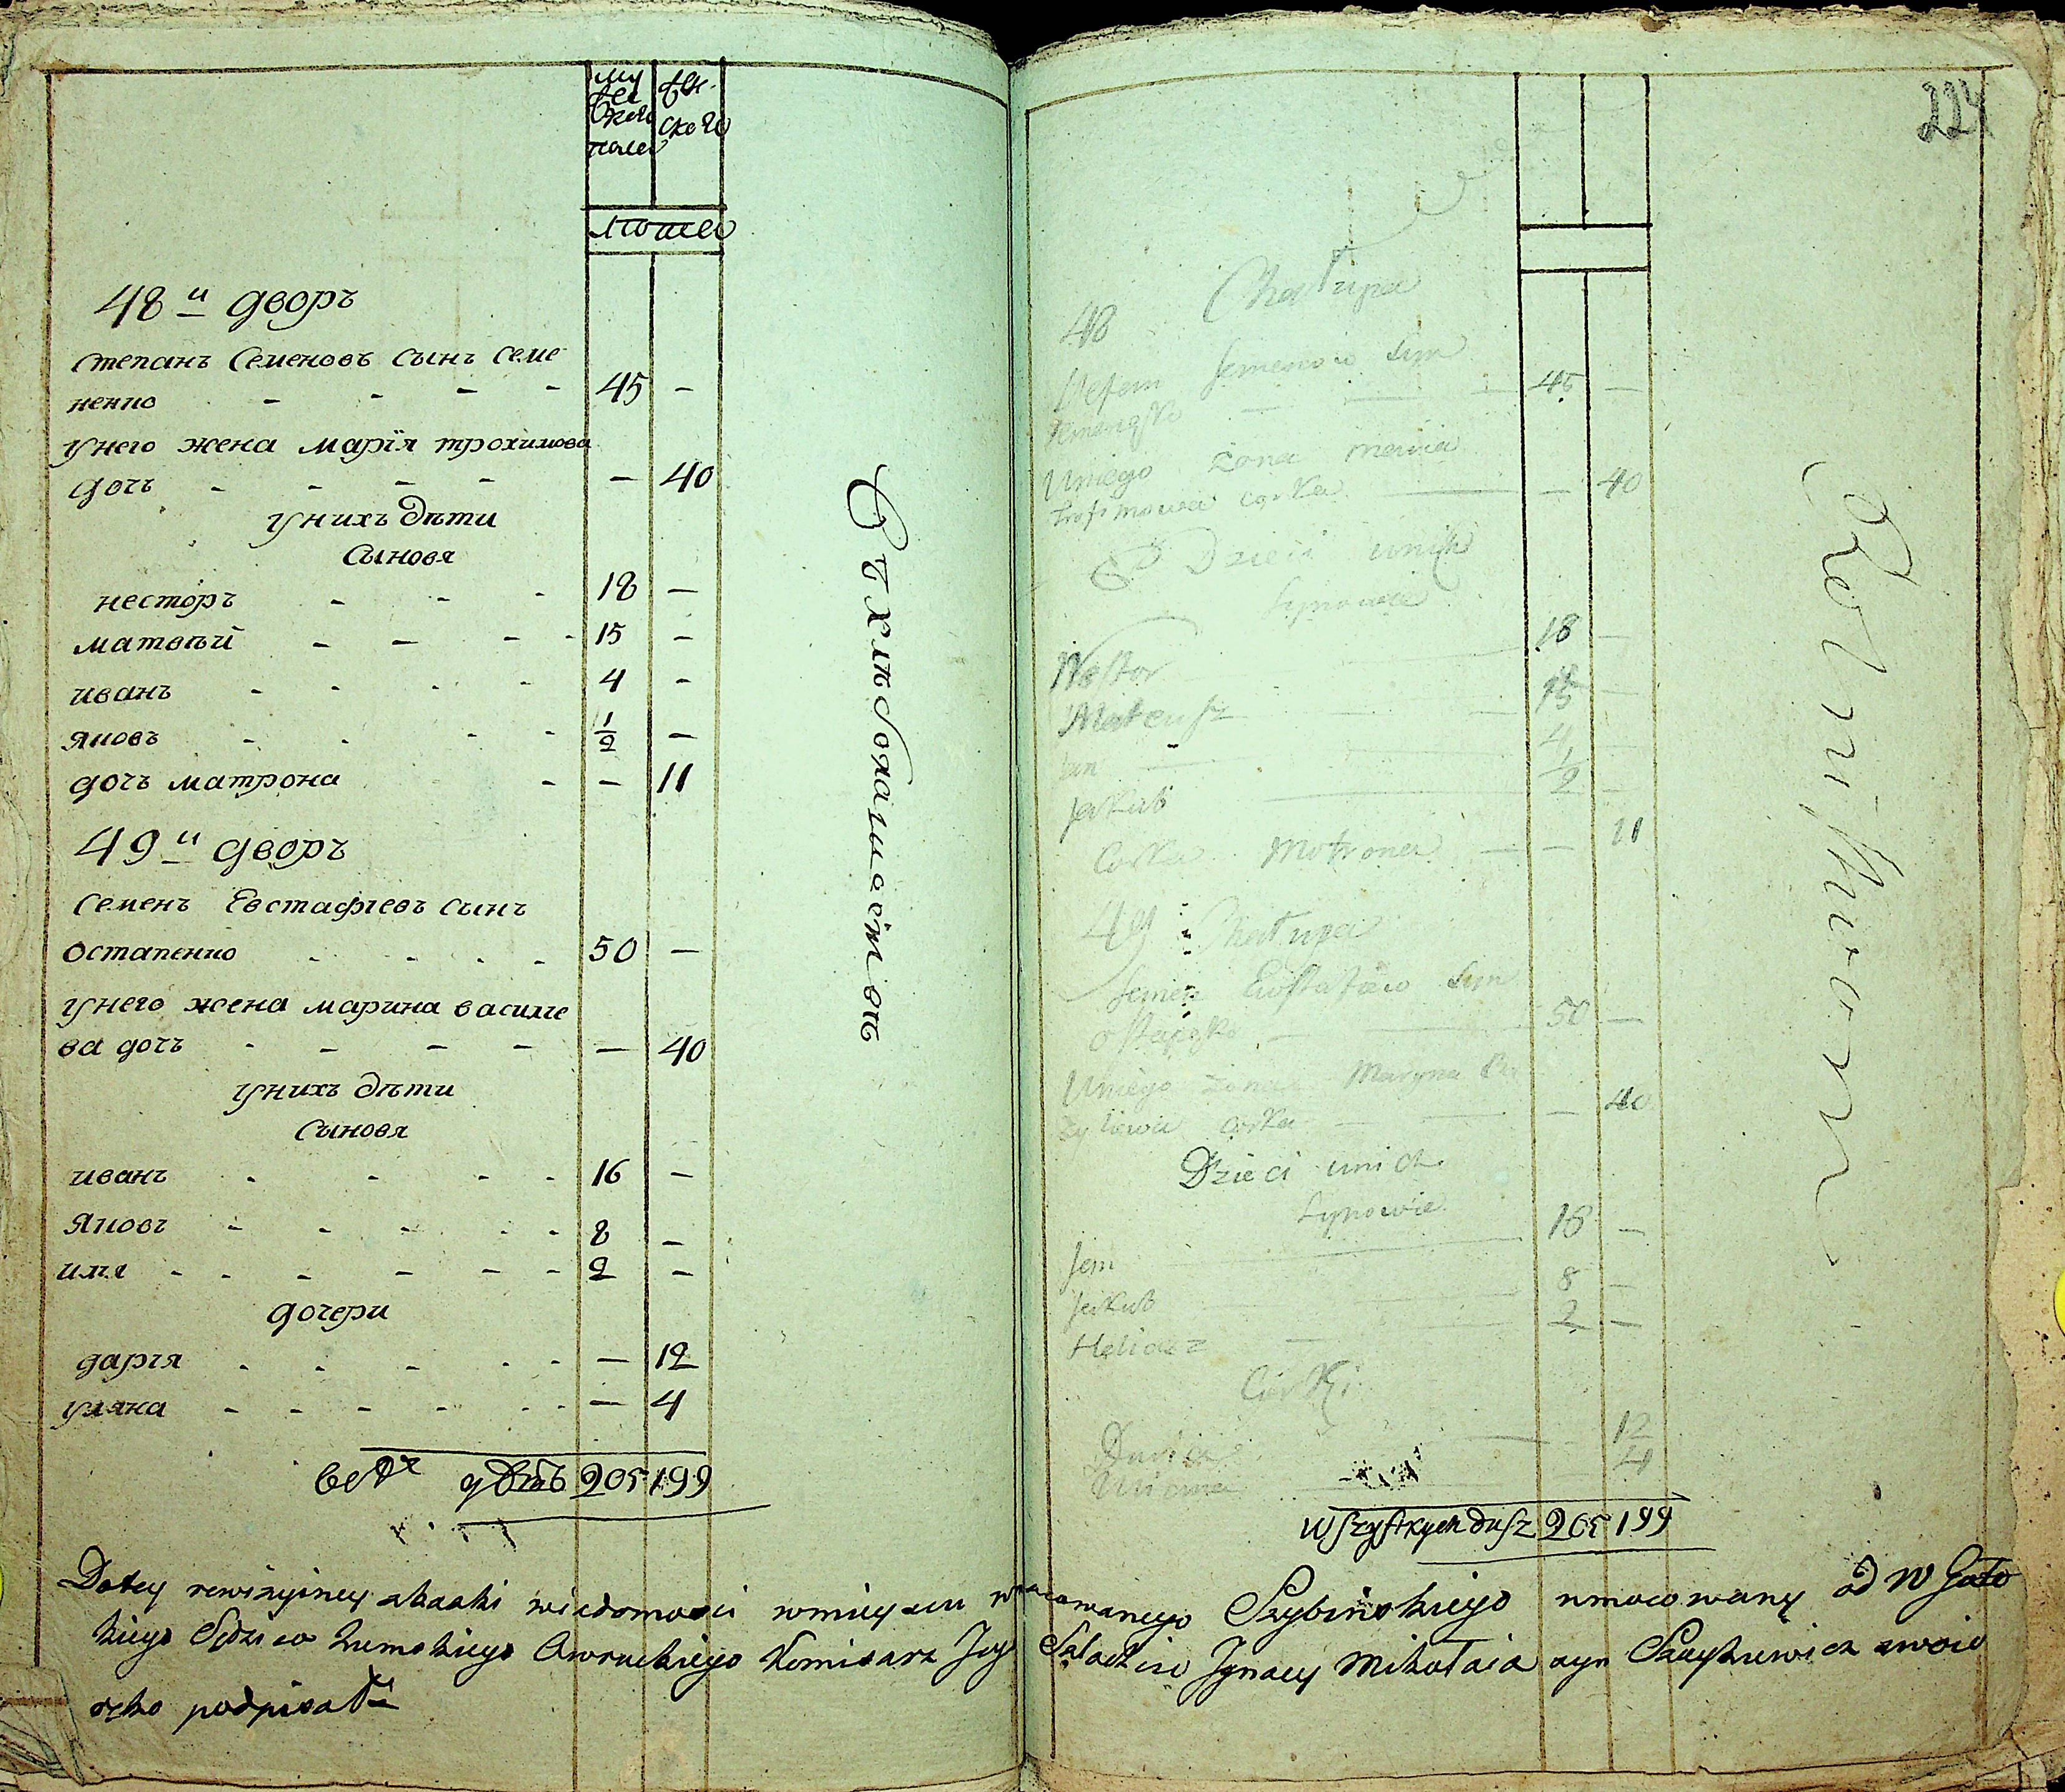 му
жес
кого
полу
жен
ского
лѣта
48 й дворъ
степанъ семеновъ сынъ семе
ненко - - - - 45 -
у него жена марїя трохимова
дочъ - - - - - 40
у нихъ дѣти
сыновя
несторъ - - - 18 -
матвѣй - - - - 15 -
иванъ - - - - 4 -
яковъ - - - - 1/2 -
дочъ матрона - - 11
49 й дворъ
семенъ Евстафиевъ сынъ
остапенко - - - - 50 -
у него жена марина василие
ва дочъ - - - - - 40
у нихъ дѣти
сыновя
иванъ - - - - 16 -
яковъ - - - - - 8 -
илия - - - - - - 2 -
дочери
дария - - - - - - 12
уляна - - - - - - - 4
всѣхъ душъ 205 199
въ хлѣбопашествѣ
224
48 Chałupa
Stefan Semenow sын
Semenenko - - - 45 -
Uniego Żona Maria
trofimowa corka - - 40
Dzieci unich
synowie
Nestor - 18 -
Mateusz - 15 -
Jan - 4 -
Jakub - 1/2 -
Corka Motrona - - 11
49 Chałupa
Semen Eustafiow syn
ostapenko - 50 -
Uniego żona Maryna Ba
zyliewa corka - - 40
Dzieci unich
synowie
Jan 16 -
Jakub 8 -
Heliasz - 2 -
Corki
Daria - 12
Uliana - 4
wszystkych dusz 205 199
Rolnictwom
Dotey rewizyiney skaski wiedomosci wmieyscu Szybinskiego umocowany od W
kiego Sędziego Zemskiego Owruckiego Komisarz Jego Szlachcic Jgnacy Mikołaia syn swoio
ręko podpisał